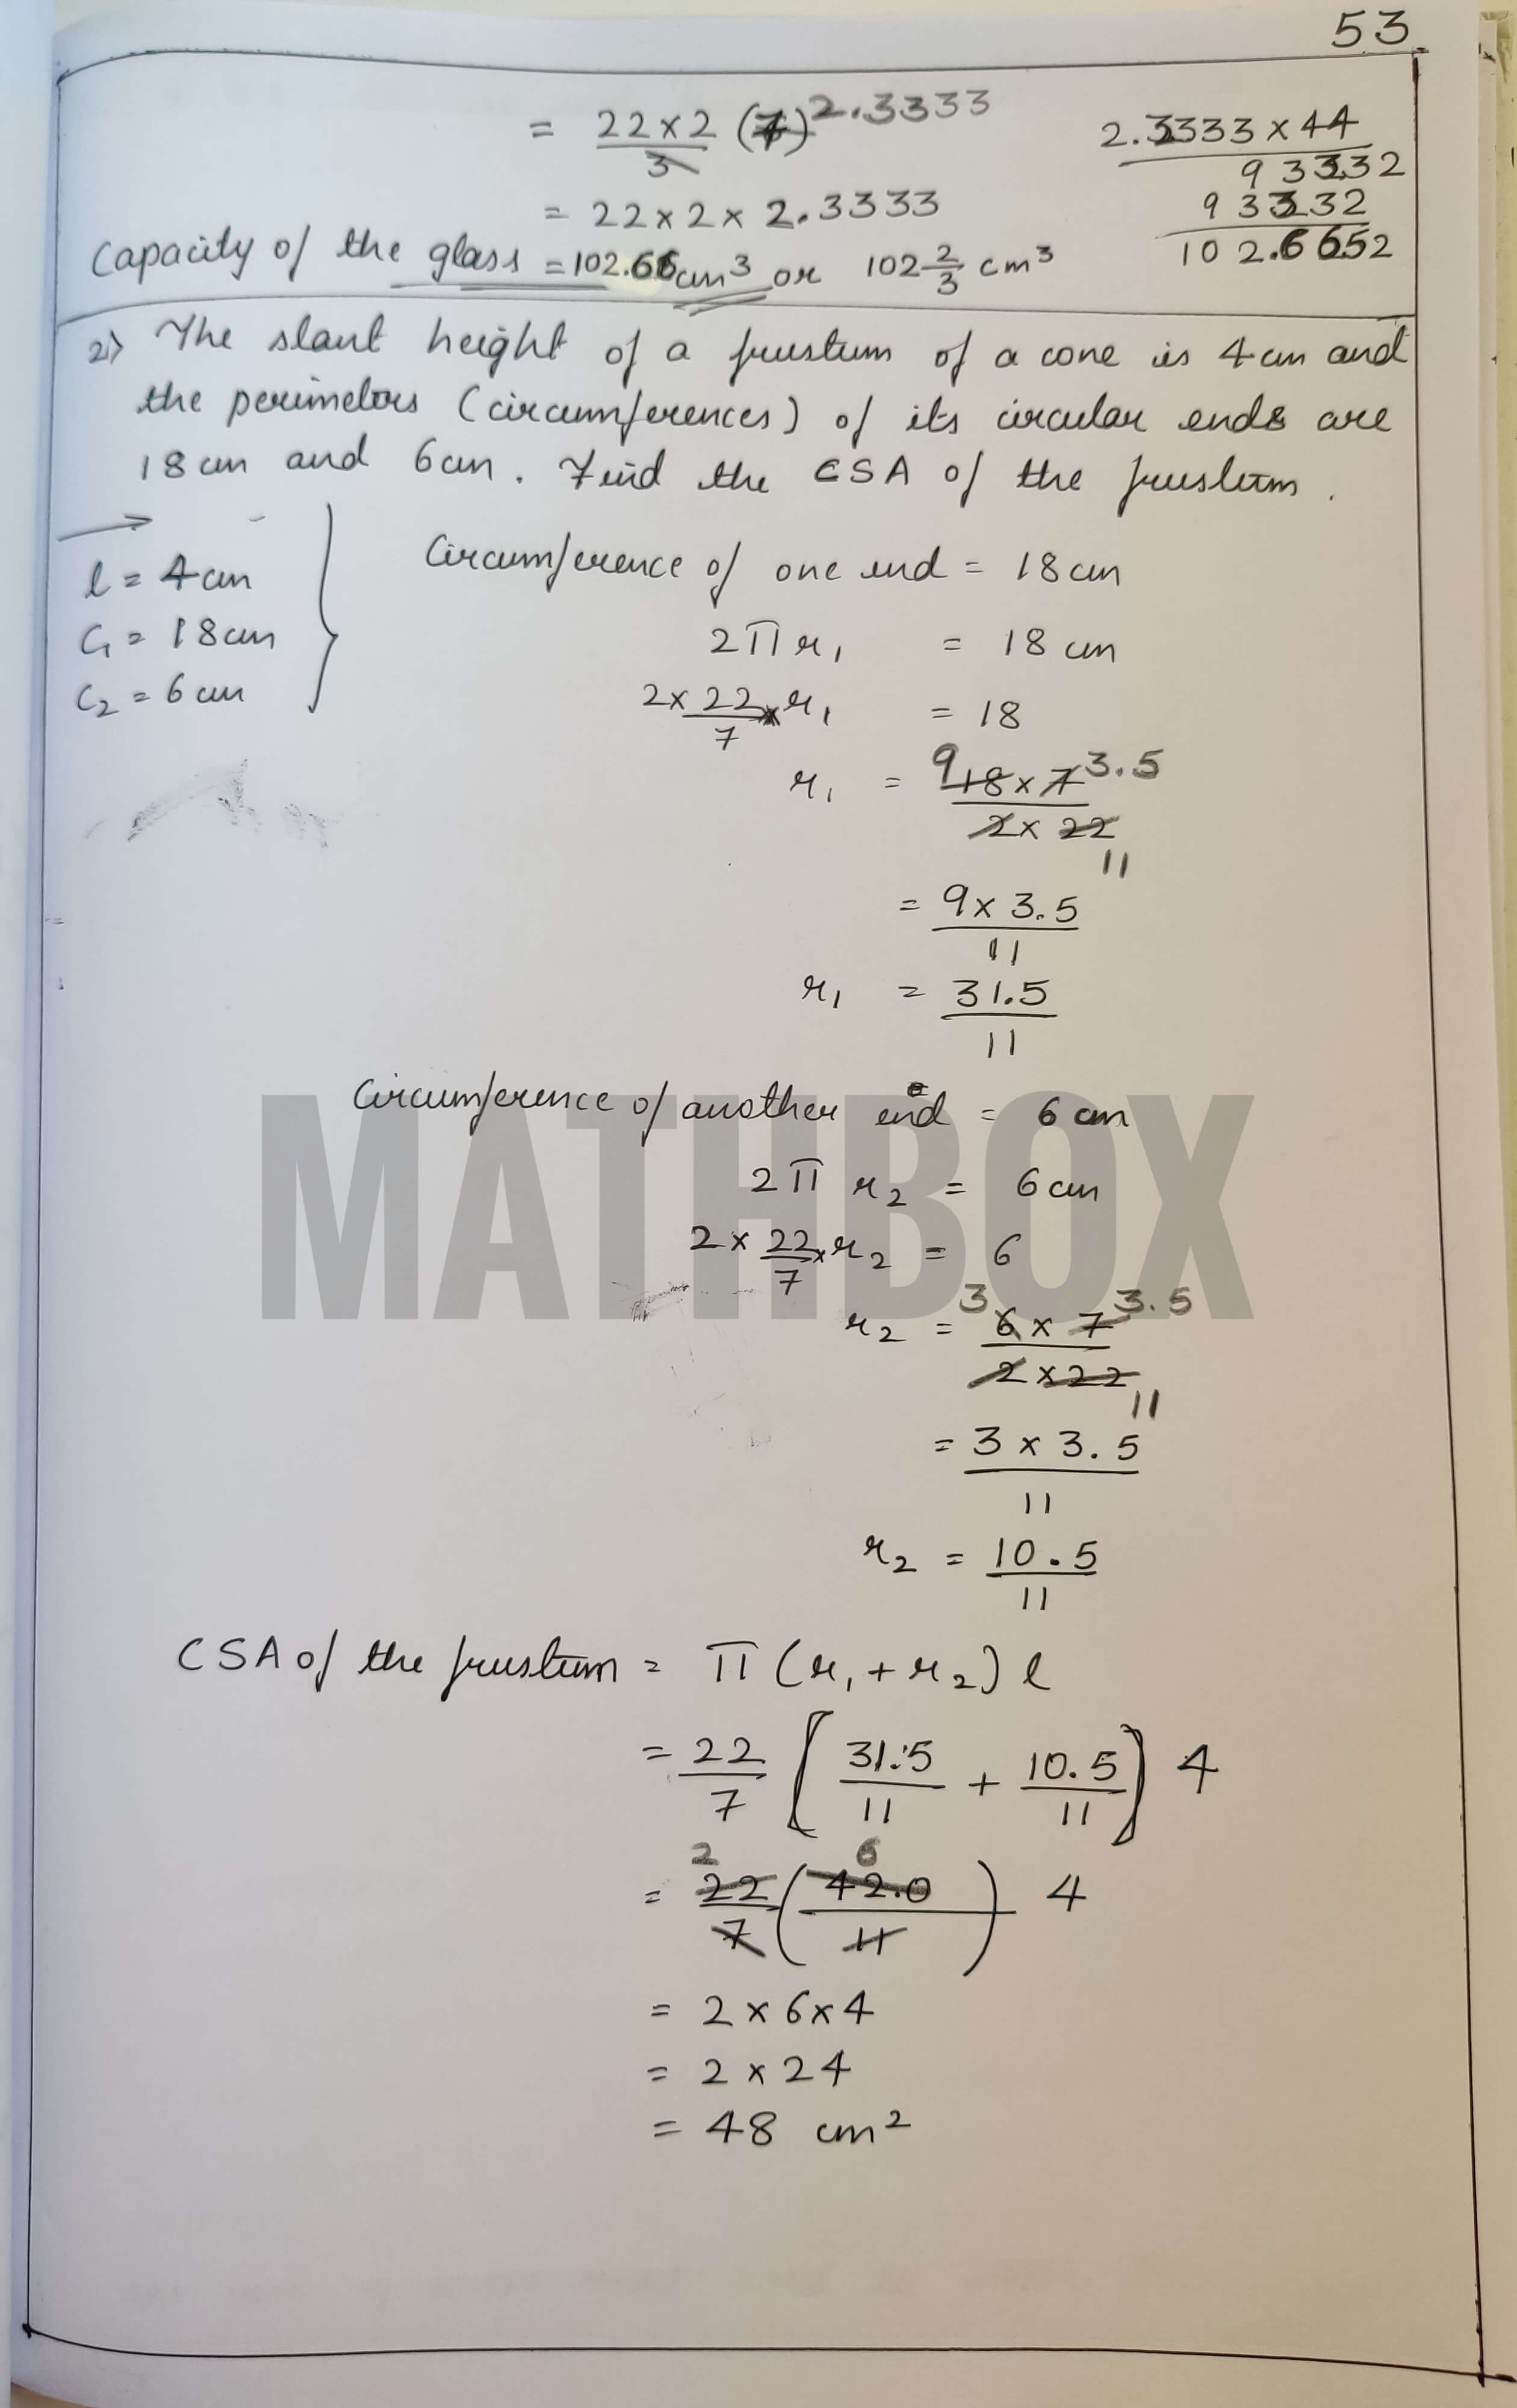 53
= 22 × 2 (7) 2.3333
3
2.3333 × 44
93332
93332
102.6652
= 22 × 2 × 2.3333
Capacity of the glass = 102.66 cm³ or 102 2/3 cm³
2) The slant height of a frustum of a cone is 4 cm and
the perimeters (circumferences) of its circular ends are
18 cm and 6 cm. Find the CSA of the frustum.
l = 4 cm
C₁ = 18 cm
C₂ = 6 cm
Circumference of one end = 18 cm
2π r₁ = 18 cm
2 × 22/7 × r₁ = 18
r₁ = 9 18 × 7 3.5
2 × 22
11
= 9 × 3.5
11
r₁ = 31.5
11
Circumference of another end = 6 cm
2π r₂ = 6 cm
2 × 22/7 × r₂ = 6
r₂ = 3 6 × 7 3.5
2 × 22
11
= 3 × 3.5
11
r₂ = 10.5
11
CSA of the frustum = π (r₁ + r₂) l
= 22/7 [31.5/11 + 10.5/11] 4
2 6
= 22/7 (42.0/11) 4
= 2 × 6 × 4
= 2 × 24
= 48 cm²
MATHBOX